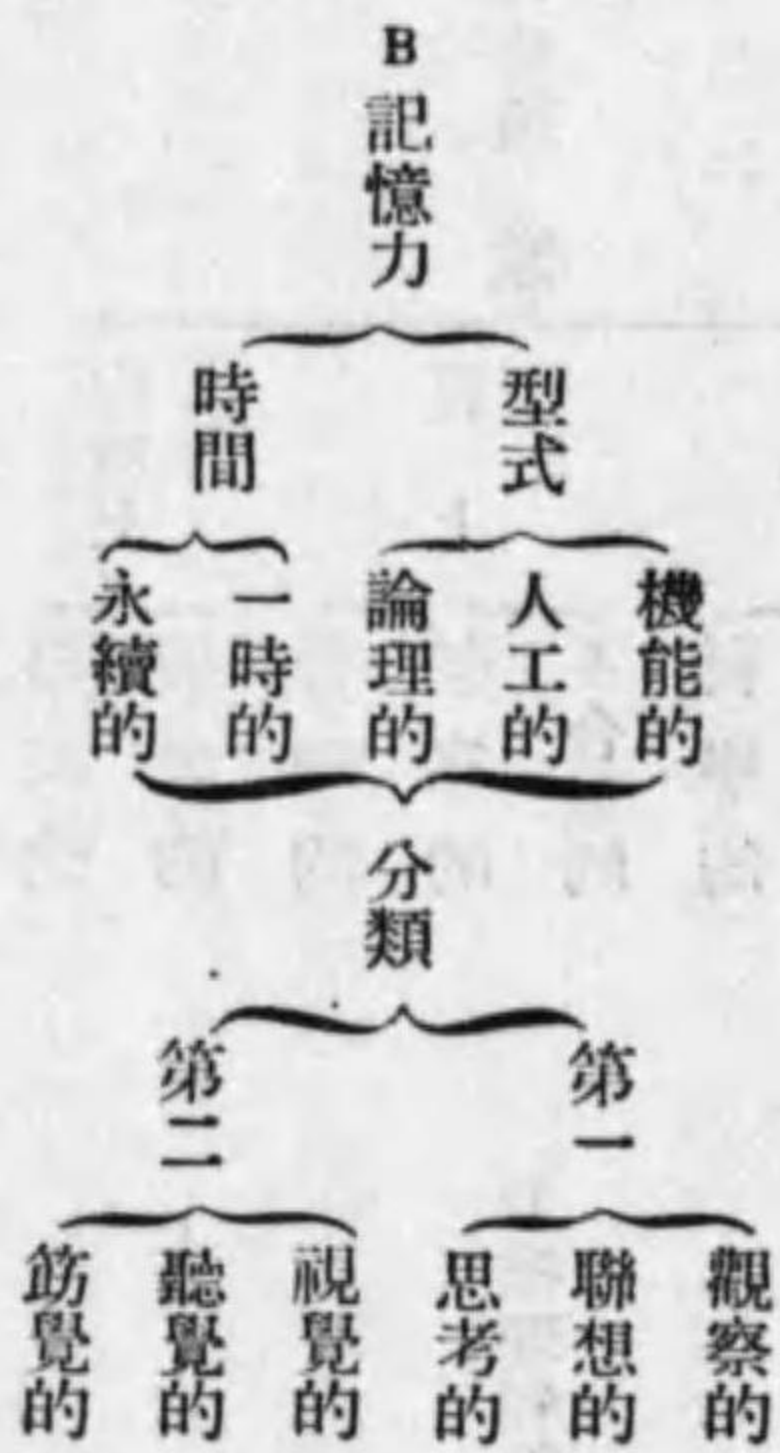 B 記憶力
型式
時間
機能的
人工的
論理的
一時的
永續的
分類
第一
第二
觀察的
聯想的
思考的
視覺的
聽覺的
筋覺的